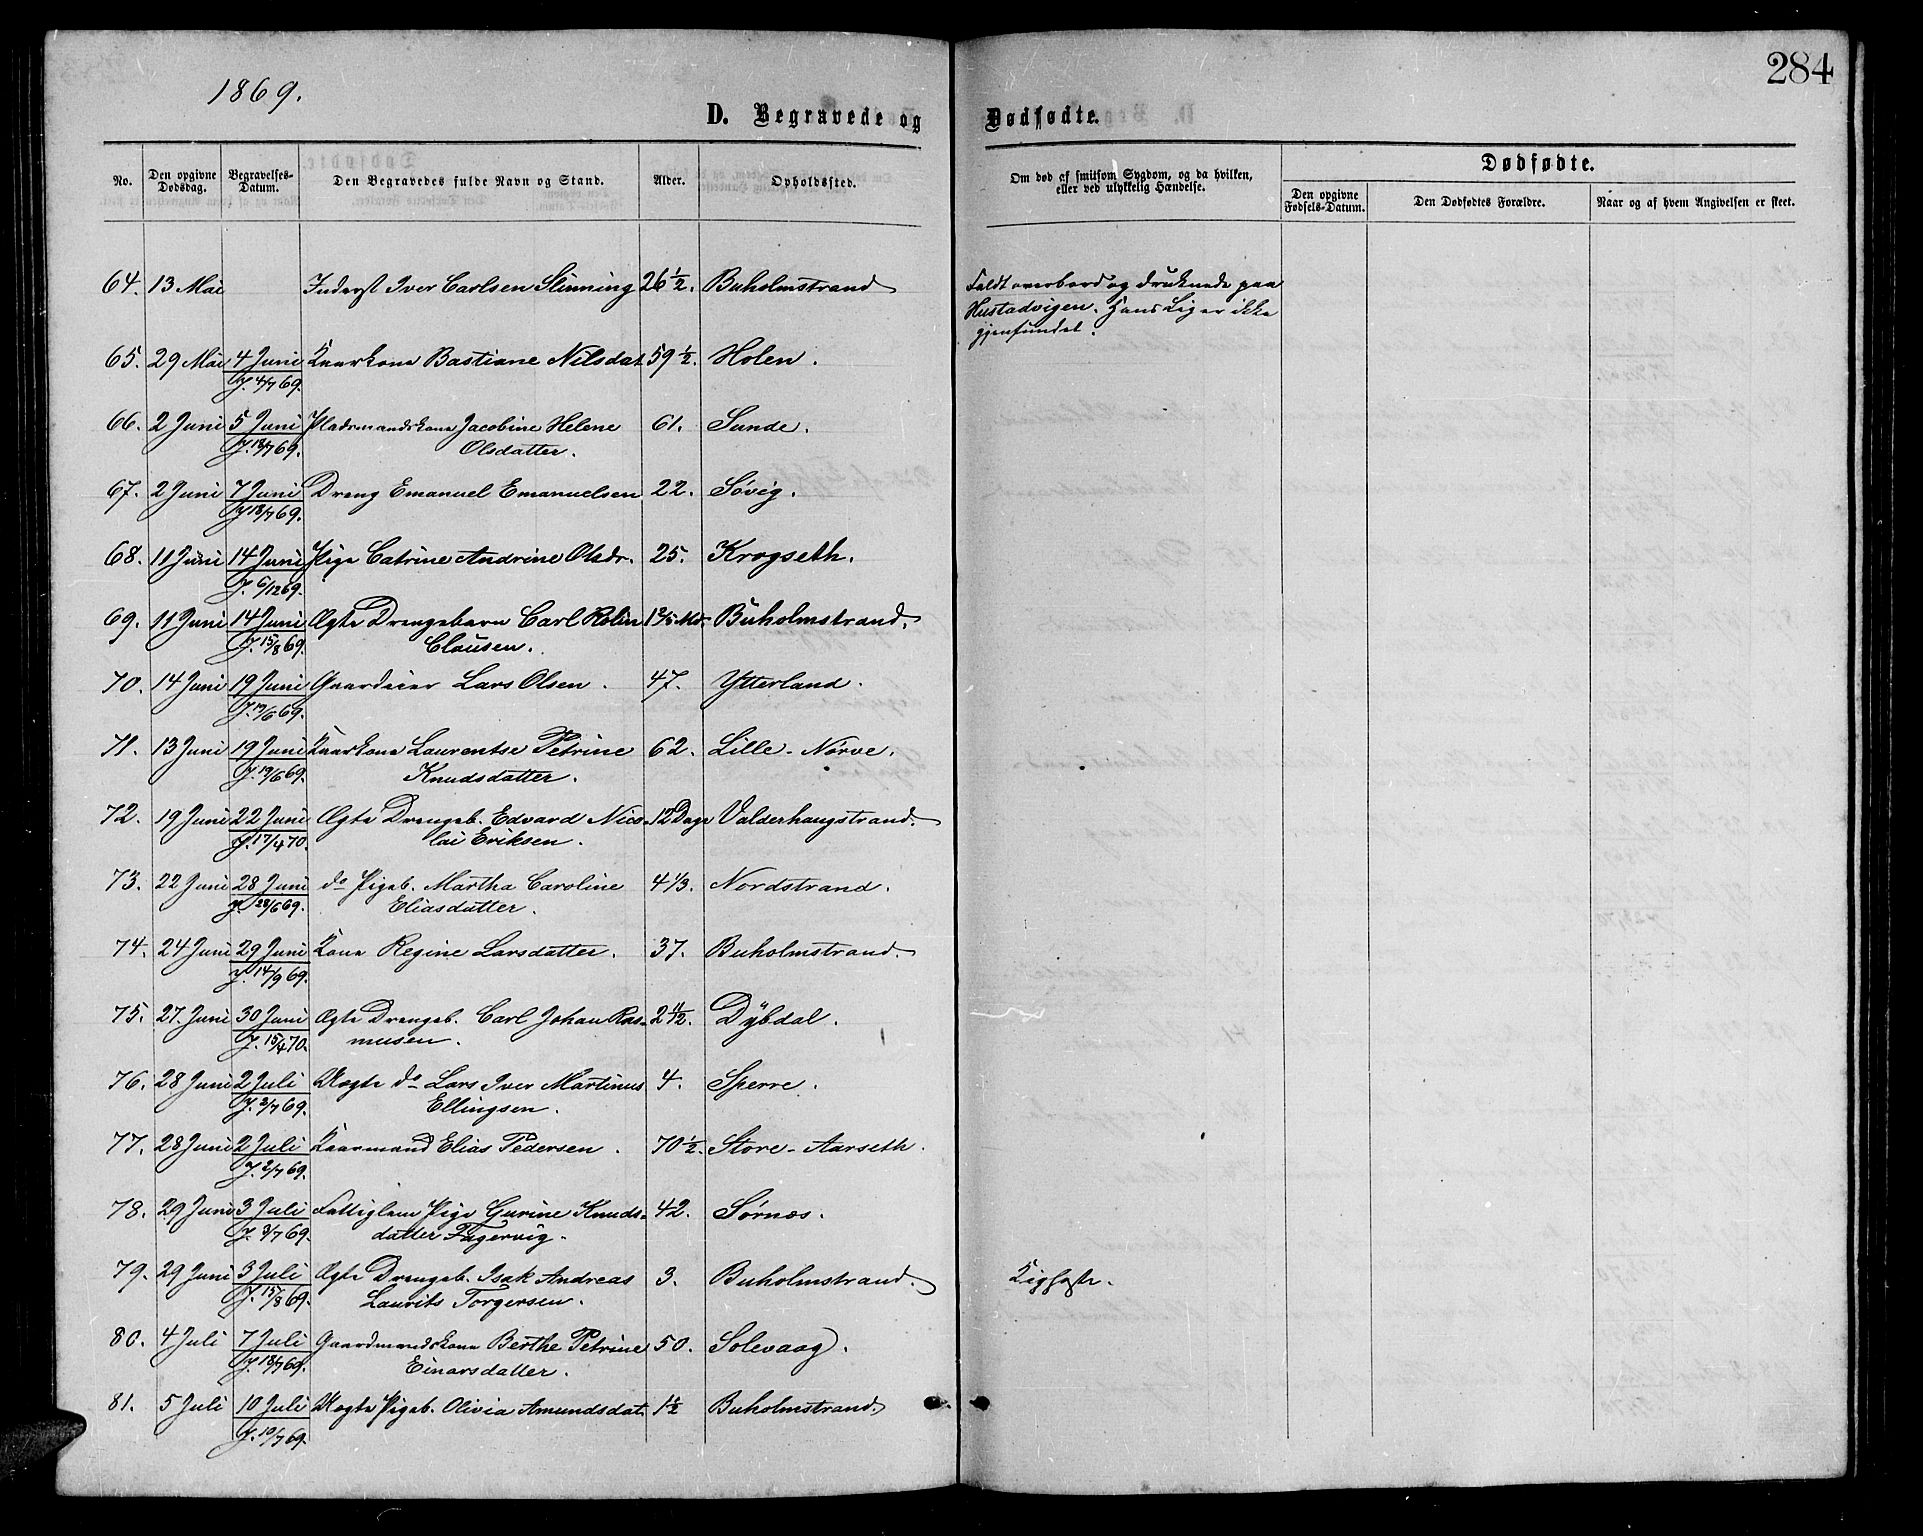 284
1869.
D. Begravede og Dødfødte.
Dødfødte.
No.
Den opgivne Dødsdag.
Begravelses-Datum.
Den Begravedes fulde Navn og Stand.
Alder.
Opholdssted.
Om død af smitsom Sygdom, og da hvilken,
eller ved ulykkelig Hændelse.
Den opgivne Fødsels-Datum.
Den Dødfødtes Forældre.
Naar og af hvem Angivelsen er skeet.
64. 13 Mai Inderst Iver Carlsen Slinning 26 1/2. Buholmstrand Faldt overbord og druknede paa
Hustadvigen. Hans Lig er ikke
gjenfundet.
65. 29 Mai 4 Juni Kaarkone Bastiane Nilsdat 59 1/2. Holen.
J. 4/7 69.
66. 2 Juni 5 Juni Pladsmandskone Jacobine Helene 61. Sunde.
J. 18/7 69. Olsdatter.
67. 2 Juni 7 Juni Dreng Emanuel Emanuelsen 22. Søvig.
J. 18/7 69.
68. 11 Juni 14 Juni Pige Catrine Andrine Olsdr. 25. Krogseth.
J. 6/12 69.
69. 11 Juni 14 Juni Ægte Drengebarn Carl Rolin Buholmstrand.
J. 15/8 69. Clausen.
70. 14 Juni 19 Juni Gaardeier Lars Olsen. 47. Ytterland.
J. 19/6 69.
71. 13 Juni 19 Juni Kaarkone Laurentse Petrine 62. Lille-Nørve.
J. 19/6 69. Knudsdatter.
72. 19 Juni 22 Juni Ægte Drengeb. Edvard Nico- 12 Dage Valderhaugstrand.
J. 17/4 70. lai Eriksen.
73. 22 Juni 28 Juni do Pigeb. Martha Caroline 4 1/3. Nordstrand.
J. 28/6 69. Eliasdatter.
74. 24 Juni 29 Juni Kone Regine Larsdatter. 37. Buholmstrand.
J. 14/9 69.
75. 27. Juni 30 Juni Ægte Drengeb. Carl Johan Ras- 2 11/12. Dÿbdal.
J. 15/4 70. musen.
76. 28 Juni 2 Juli Uægte do Lars Iver Martinus 4. Sperre.
J. 2/7 69. Ellingsen.
77. 28 Juni 2 Juli Kaarmand Elias Pedersen. 70 1/2. Store-Aarseth.
J. 2/7 69.
78. 29 Juni 3 Juli Fattiglem Pige Gurine Knuds- 42. Sørnes.
J. 3/7 69. datter Fagervig.
79. 29 Juni 3 Juli Ægte Drengeb. Isak Andreas 3. Buholmstrand.
J. 15/8 69. Laurits Torgersen.
80. 4 Juli 7 Juli Gaardmandskone Berthe Petrine 50. Solevaag.
J. 18/7 69. Einarsdatter.
81. 5 Juli 10 Juli Uægte Pigeb. Olivia Amundsdat. 1 1/2 Buholmstrand.
J. 10/7 69.